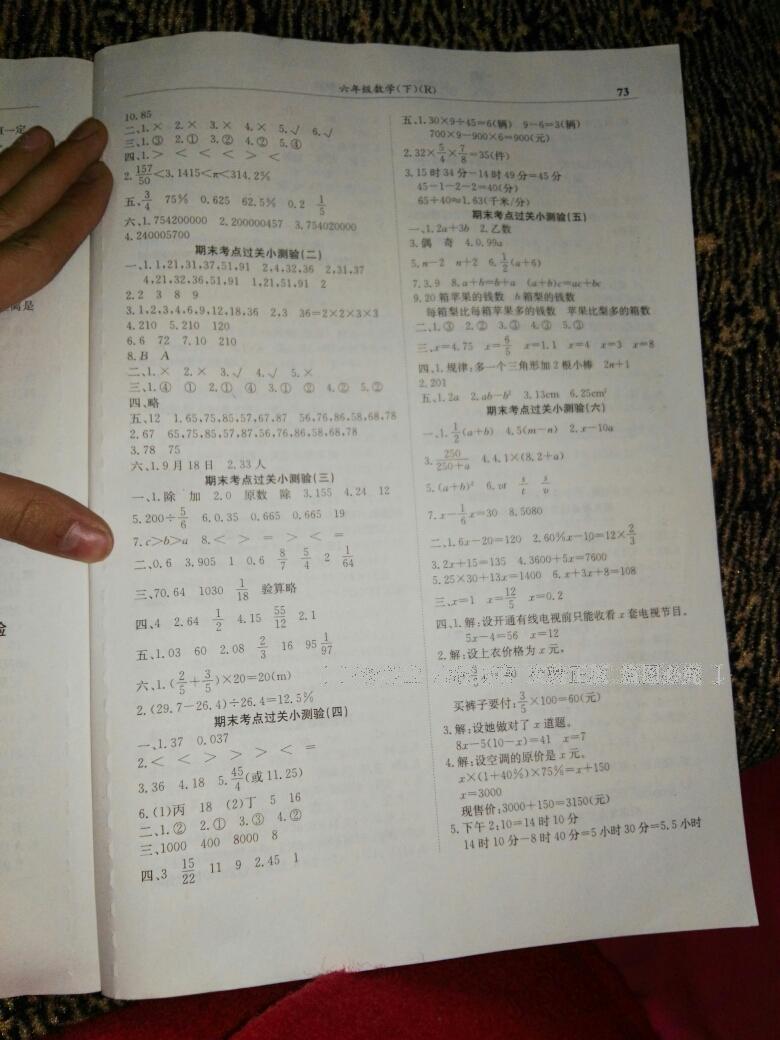 六年级数学(下)(R) 73
10.85
二、1.× 2.× 3.× 4.× 5.√ 6.√
三、1.③ 2.① 3.② 4.② 5.④
四、1.> < < < > <
2.157/50<3.1415<π<314.2%
五、3/4 75% 0.625 62.5% 0.2 1/5
六、1.754200000 2.200000457 3.754020000
4.240005700
期末考点过关小测验(二)
一、1.1,21,31,37,51,91 2,4,32,36 2,31,37
4,21,32,36,51,91 1,21,51,91 2
2.2 3 8 9
3.1,2,3,4,6,9,12,18,36 2,3 36=2×2×3×3
4.210 5.210 120
6.6 72 7.10 210
8.B A
二、1.× 2.× 3.√ 4.√ 5.×
三、1.④ ① 2.① ④ 3.① ② 4.② 5.②
四、略
五、12 1.65,75,85,57,67,87 56,76,86,58,68,78
2.67 65,75,85,57,87,56,76,86,58,68,78
3.78 75
六、1.9月18日 2.33人
期末考点过关小测验(三)
一、1.除 加 2.0 原数 除 3.155 4.24 12
5.200÷5/6 6.0.35 0.665 0.665 19
7.c>b>a 8.< > = > < =
二、0.6 3.905 1 0.6 8/7 5/4 2 1/64
三、70.64 1030 1/18 验算略
四、4 2.64 1/2 4.15 55/12 2.1
五、1.03 60 2.08 2/3 16 95 1/97
六、1.(2/5+3/5)×20=20(m)
2.(29.7-26.4)÷26.4=12.5%
期末考点过关小测验(四)
一、1.37 0.037
2.< < > > > < =
3.36 4.18 5.45/4(或11.25)
6.(1)丙 18 (2)丁 5 16
二、1.② 2.① 3.③ 4.②
三、1000 400 8000 8
四、3 15/22 11 9 2.45 1
五、1.30×9÷45=6(辆) 9-6=3(辆)
700×9-900×6=900(元)
2.32×5/4×7/8=35(件)
3.15时34分-14时49分=45分
45-1-2-2=40(分)
65÷40≈1.63(千米/分)
期末考点过关小测验(五)
一、1.2a+3b 2.乙数
3.偶 奇 4.0.99a
5.n-2 n+2 6.1/2(a+6)
7.3.9 8.a+b=b+a (a+b)c=ac+bc
9.20箱苹果的钱数 b箱梨的钱数
每箱梨比每箱苹果多的钱数 苹果比梨多的箱数
二、1.③ 2.② 3.③ 4.③ 5.③
三、x=4.75 x=6/5 x=1.1 x=4 x=3 x=8
四、1.规律:多一个三角形加2根小棒 2n+1
2.201
五、1.2a 2.ab-b² 3.13cm 6.25cm²
期末考点过关小测验(六)
一、1.1/2(a+b) 4.5(m-n) 2.x-10a
3.250/250+a 4.4.1×(8.2+a)
5.(a+b)² 6.vt s/t s/v
7.x-1/6x=30 8.5080
二、1.6x-20=120 2.60%x-10=12×2/3
3.2x+15=135 4.3600+5x=7600
5.25×30+13x=1400 6.x+3x+8=108
三、x=1 x=12/5 x=0.2
四、1.解:设开通有线电视前只能收看x套电视节目。
5x-4=56 x=12
2.解:设上衣价格为x元。
买裤子要付:3/5×100=60(元)
3.解:设她做对了x道题。
8x-5(10-x)=41 x=7
4.解:设空调的原价是x元。
x×(1+40%)×75%=x+150
x=3000
现售价:3000+150=3150(元)
5.下午2:10=14时10分
14时10分-8时40分=5小时30分=5.5小时